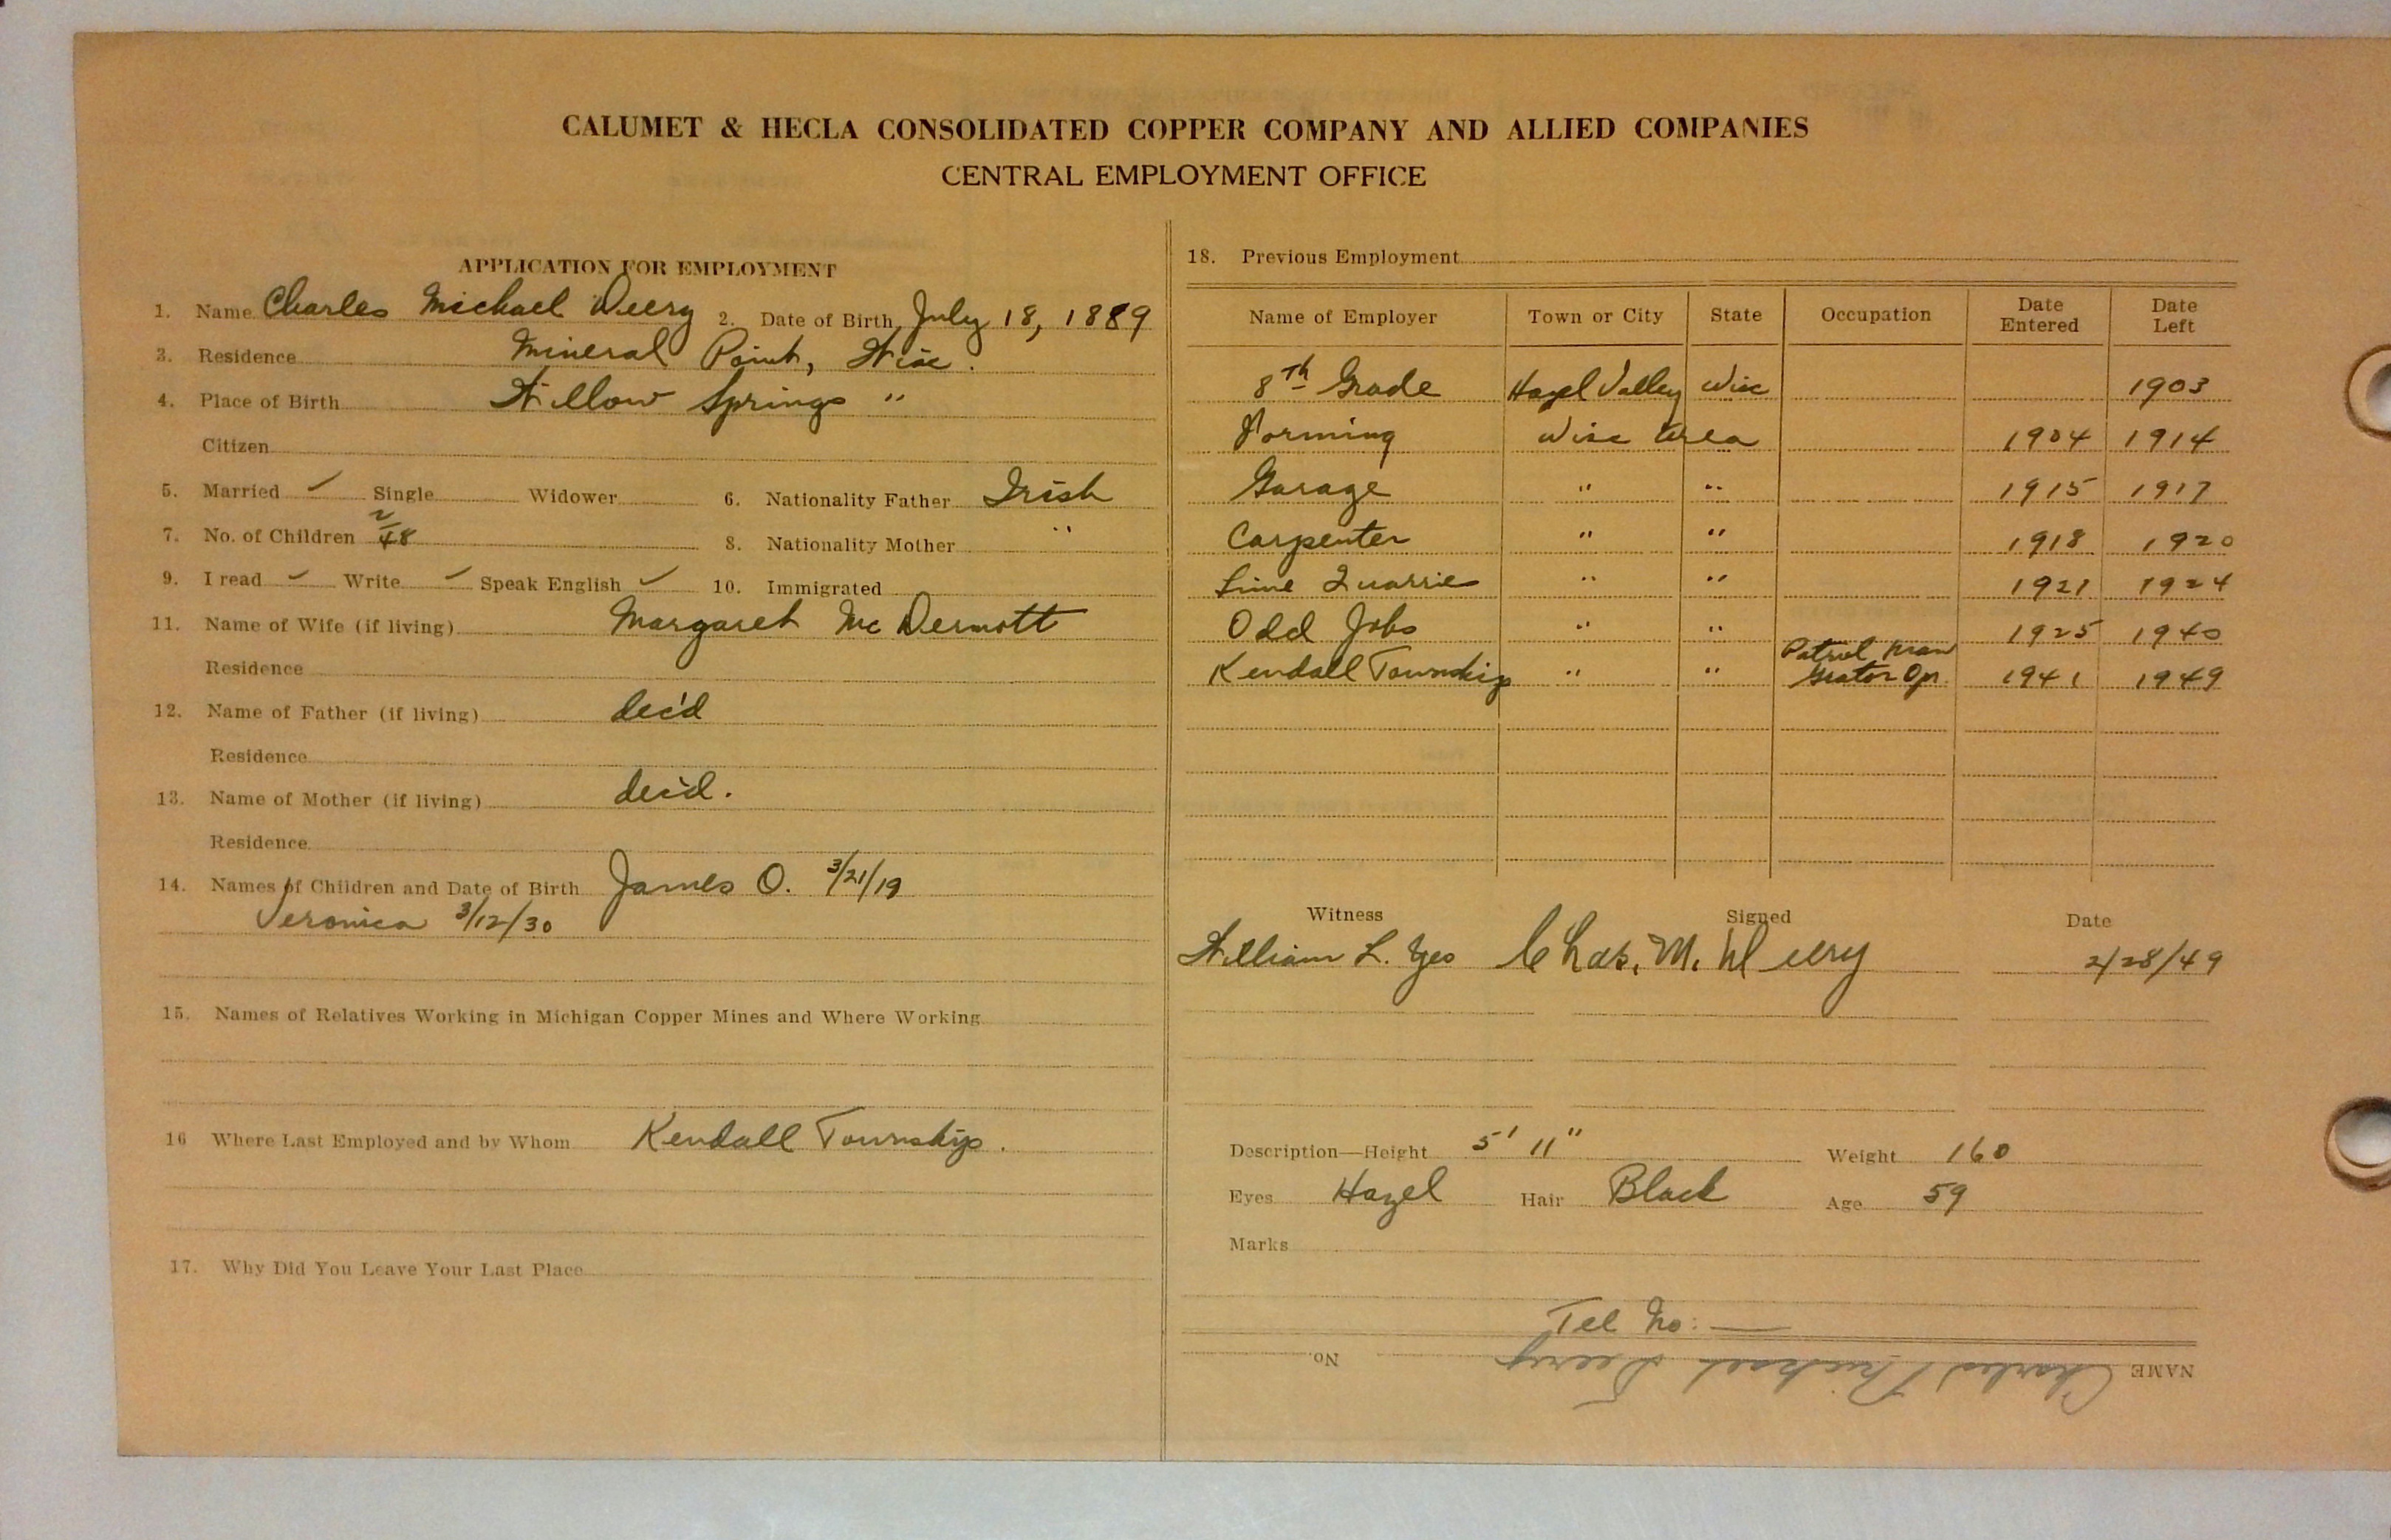 CALUMET & HECLA CONSOLIDATED COPPER COMPANY AND ALLIED COMPANIES
CENTRAL EMPLOYMENT OFFICE
APPLICATION FOR EMPLOYMENT
1. Name Charles Michael Deery 2. Date of Birth July 18, 1889
3. Residence Mineral Point, Wisc.
4. Place of Birth Willow Springs "
Citizen
5. Married ✓ Single Widower 6. Nationality Father Irish
7. No. of Children 2 8. Nationality Mother "
9. I read ✓ Write ✓ Speak English ✓ 10. Immigrated
11. Name of Wife (if living) Margaret Mc Dermott
Residence
12. Name of Father (if living) dec'd
Residence
13. Name of Mother (if living) dec'd.
Residence
14. Names of Children and Date of Birth James O. 3/21/19
Veronica 3/12/30
15. Names of Relatives Working in Michigan Copper Mines and Where Working
16 Where Last Employed and by Whom Kendall Township.
17. Why Did You Leave Your Last Place
18. Previous Employment
Name of Employer Town or City State Occupation Date Entered Date Left
8th Grade Hazel Valley Wisc 1903
Farming Wisc Area 1904 1914
Garage " " 1915 1917
Carpenter " " 1918 1920
Lime Quarrie " " 1921 1924
Odd Jobs " " 1925 1940
Kendall Township " " Patrol man Op. 1941 1949
Witness Signed Date
William L. Chas. M. Deery 2/28/49
Description—Height 5' 11" Weight 160
Eyes Hazel Hair Black Age 59
Marks
Tel No: —
NAME Charles Michael Deery No.